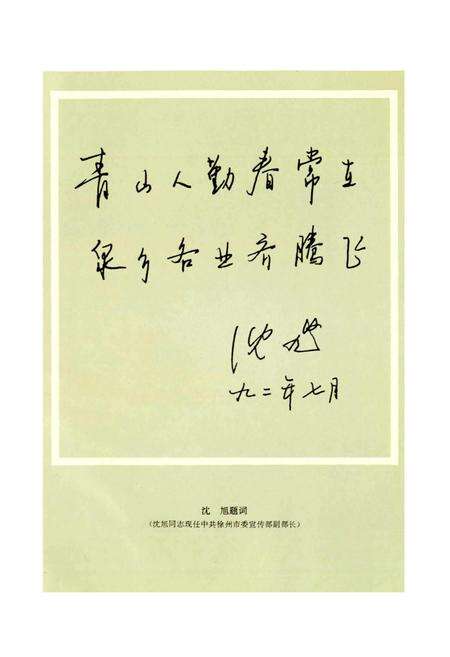 青山人勤春常在
泉乡各业齐腾飞
沈旭
九二年七月
沈 旭题词
（沈旭同志现任中共徐州市委宣传部副部长）